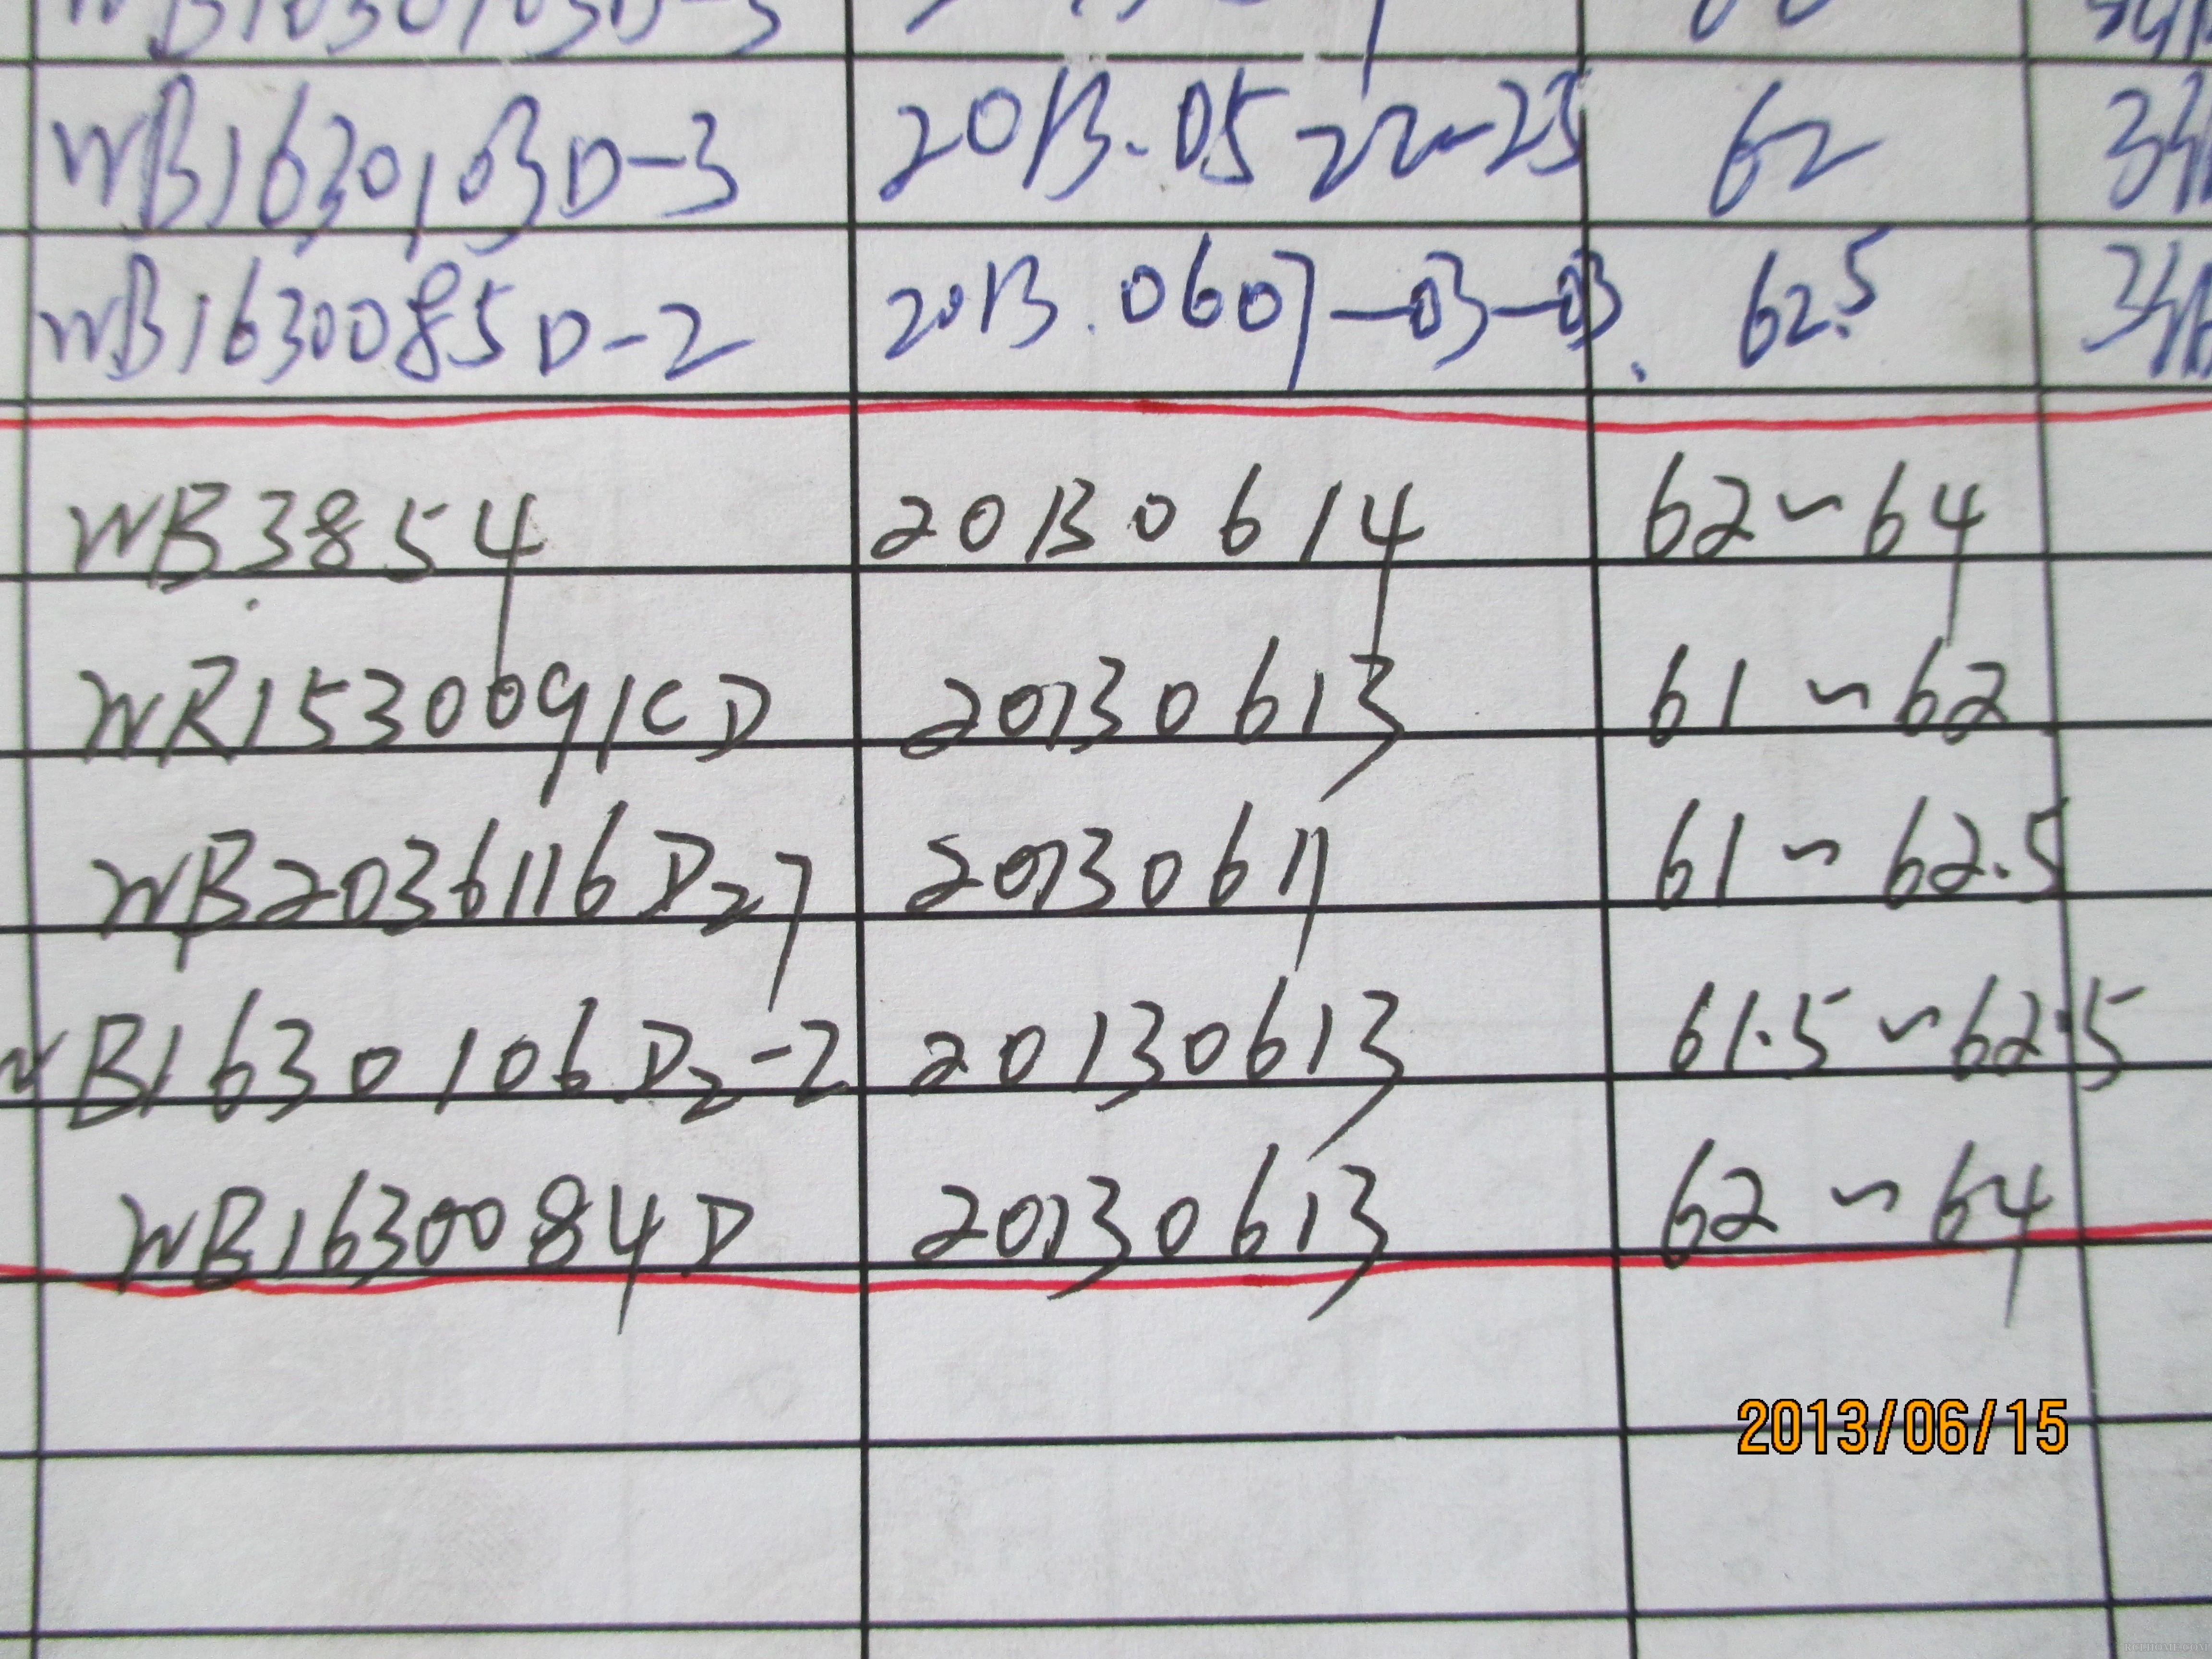 WB1630103D-3 2013.05 22-23 62
WB1630085D-2 2013.0607-03-03. 62.5
WB3854 20130614 62~64
WR1530091CD 20130613 61~62
WB2036116D27 20130611 61~62.5
WB1630106D2-2 20130613 61.5~62.5
WB1630084D 20130613 62~64
2013/06/15